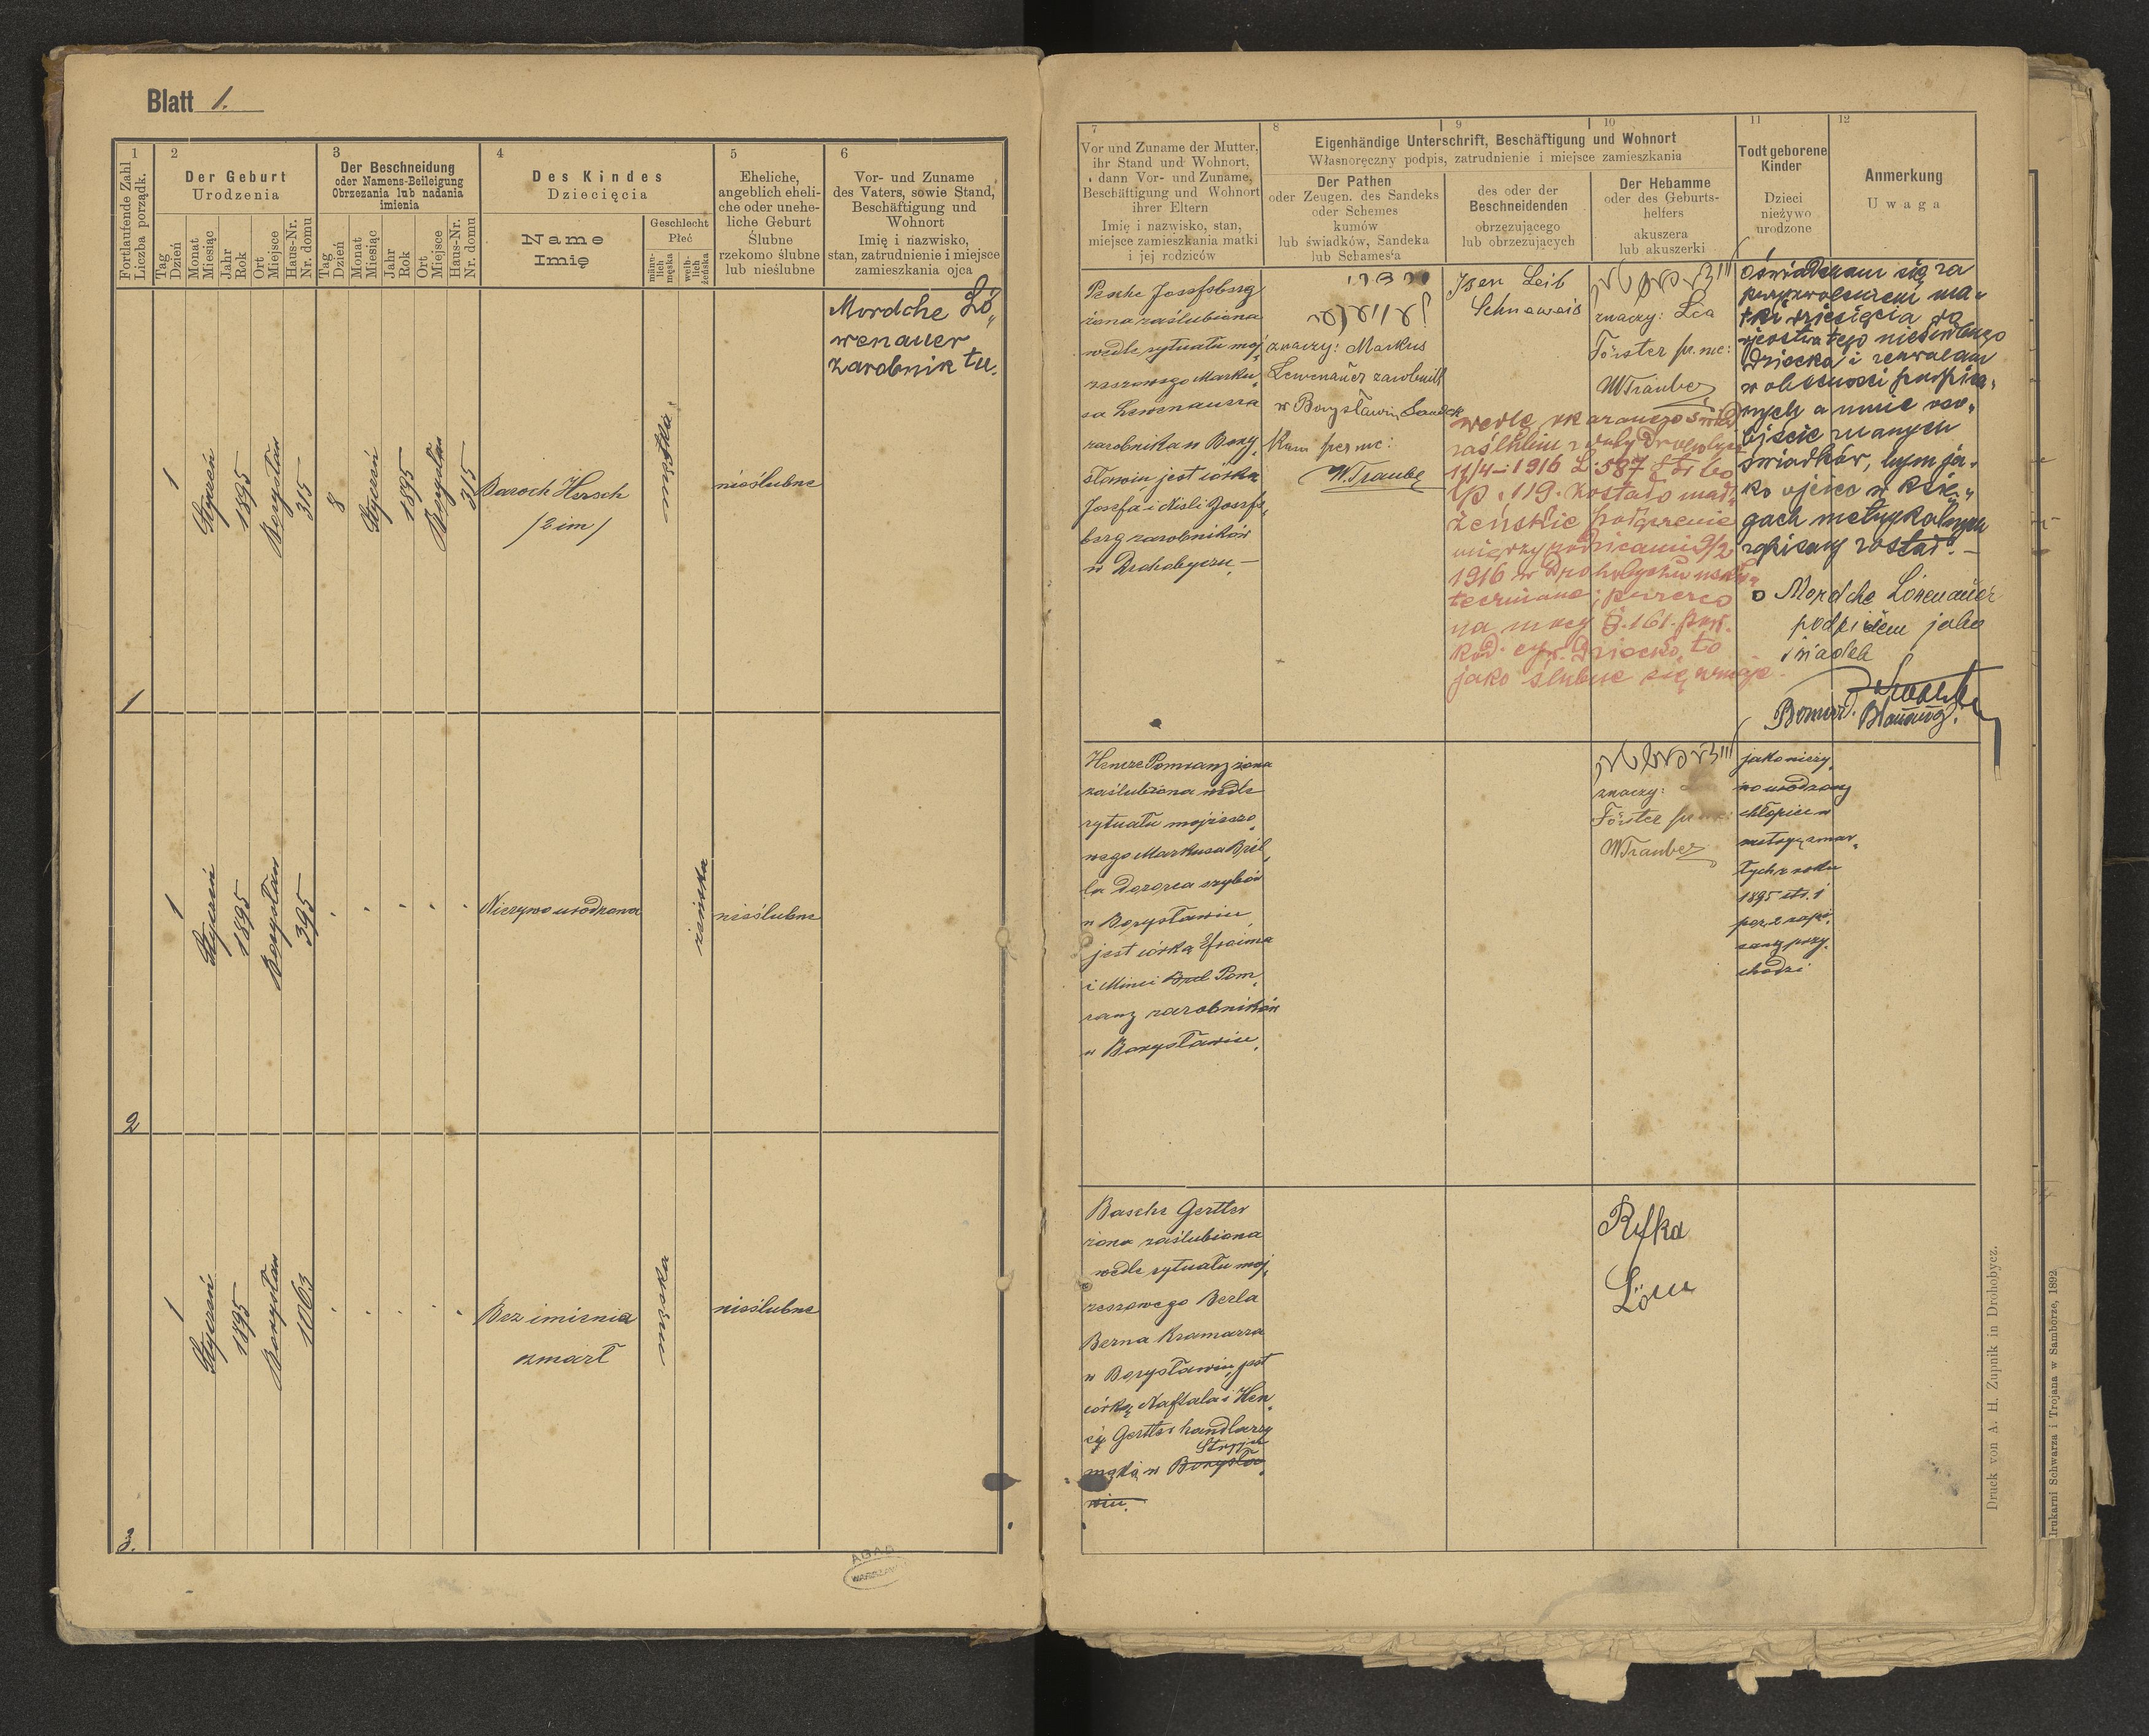 Blatt 1.
1
Fortlaufende Zahl
Liczba porządk.
2
Der Geburt
Urodzenia
Tag
Dzień
Monat
Miesiąc
Jahr
Rok
Ort
Miejsce
Haus-Nr.
Nr. domu
3
Der Beschneidung
oder Namens-Beileigung
Obrzezania lub nadania
imienia
Tag
Dzień
Monat
Miesiąc
Jahr
Rok
Ort
Miejsce
Haus-Nr.
Nr. domu
4
Des Kindes
Dziecięcia
Name
Imię
Geschlecht
Płeć
männ-
lich
męska
weib-
lich
żeńska
5
Eheliche,
angeblich eheli-
che oder unehe-
liche Geburt
Ślubne
rzekomo ślubne
lub nieślubne
6
Vor- und Zuname
des Vaters, sowie Stand,
Beschäftigung und
Wohnort
Imię i nazwisko,
stan, zatrudnienie i miejsce
zamieszkania ojca
1
1
Styczeń
1895
Borysław
315
8
Styczeń
1895
Borysław
315
Baroch Hersch
/2 im/
męska
nieślubne
Mordche Lö„
wenauer
zarobnik tu.
2
1
Styczeń
1895
Borysław
395
Nieżywo urodzona
żeńska
nieślubne
3.
1
Styczeń
1895
Borysław
1063
Bez imienia
zmarł
męska
nieślubne
AGAD
WARSZAWA
7
Vor und Zuname der Mutter,
ihr Stand und Wohnort,
dann Vor- und Zuname,
Beschäftigung und Wohnort
ihrer Eltern
Imię i nazwisko, stan,
miejsce zamieszkania matki
i jej rodziców
8
9
10
Eigenhändige Unterschrift, Beschäftigung und Wohnort
Własnoręczny podpis, zatrudnienie i miejsce zamieszkania
Der Pathen
oder Zeugen. des Sandeks
oder Schemes
kumów
lub świadków, Sandeka
lub Schemes'a
des oder der
Beschneidenden
obrzęzującego
lub obrzezujących
Der Hebamme
oder des Geburts-
helfers
akuszera
lub akuszerki
11
Todt geborene
Kinder
Dzieci
nieżywo
urodzone
12
Anmerkung
Uwaga
Pesche Josefsberg
żona zaślubiona
wedle rytuału moj„
żeszowego Marku„
sa Lewenauera
zarobnika w Bory„
sławiu jest córką
Josefa i Nisli Josefs„
berg zarobników
w Drohobyczu.—
znaczy: Markus
Lewenauer zarobnik
w Borysławiu Sandek
Kum per me:
W. Traube
Isen Leib
Schneeweis
znaczy: Lea
Förster per me:
W Traube
1916 L: 587
lp. 119. zostało mał„
żeńskie połączenie
między rodzicami 9/2
1916 w Drohobyczu
na mocy §. 161. pow.
kod. cyw. dziecko to
jako ślubne się uznaje.
Oświadczam się za
przyzwoleniem ma„
tki dziecięcia do
ojcostwa tego nieślubnego
dziecka i zezwalam
w obecności podpisa„
nych a mnie oso„
biście znanych
świadków, bym ja„
ko ojciec w księ„
gach metrykalnych
zapisany został.—
Mordche Löwenauer
jako
świadek
Henze Pomranz żona
zaślubiona wedle
rytuału mojżeszo„
wego Markusa Bril„
la dozorca szybów
w Borysławiu,
jest córką Efroima
i Minci Pom„
ranz zarobników
w Borysławiu.
znaczy:
Förster
W Traube
jako nieży„
wo urodzony
chłopiec w
metryę zmar„
łych z roku
1895 str. 1
poz. 2 zapi„
sany przy„
chodzi
Basche Gertler
żona zaślubiona
wedle rytuału moj„
żeszowego Berla
Berna kramarza
w Borysławiu, jest
córką Naftala i Hen„
cy Gertler handlarzy
Stryju
mąką w Borysła„
wiu.
Ryfka
Löw
Druck von A. H. Żupnik in Drohobycz.
Drukarni Schwarza i Trojana w Samborze, 1892